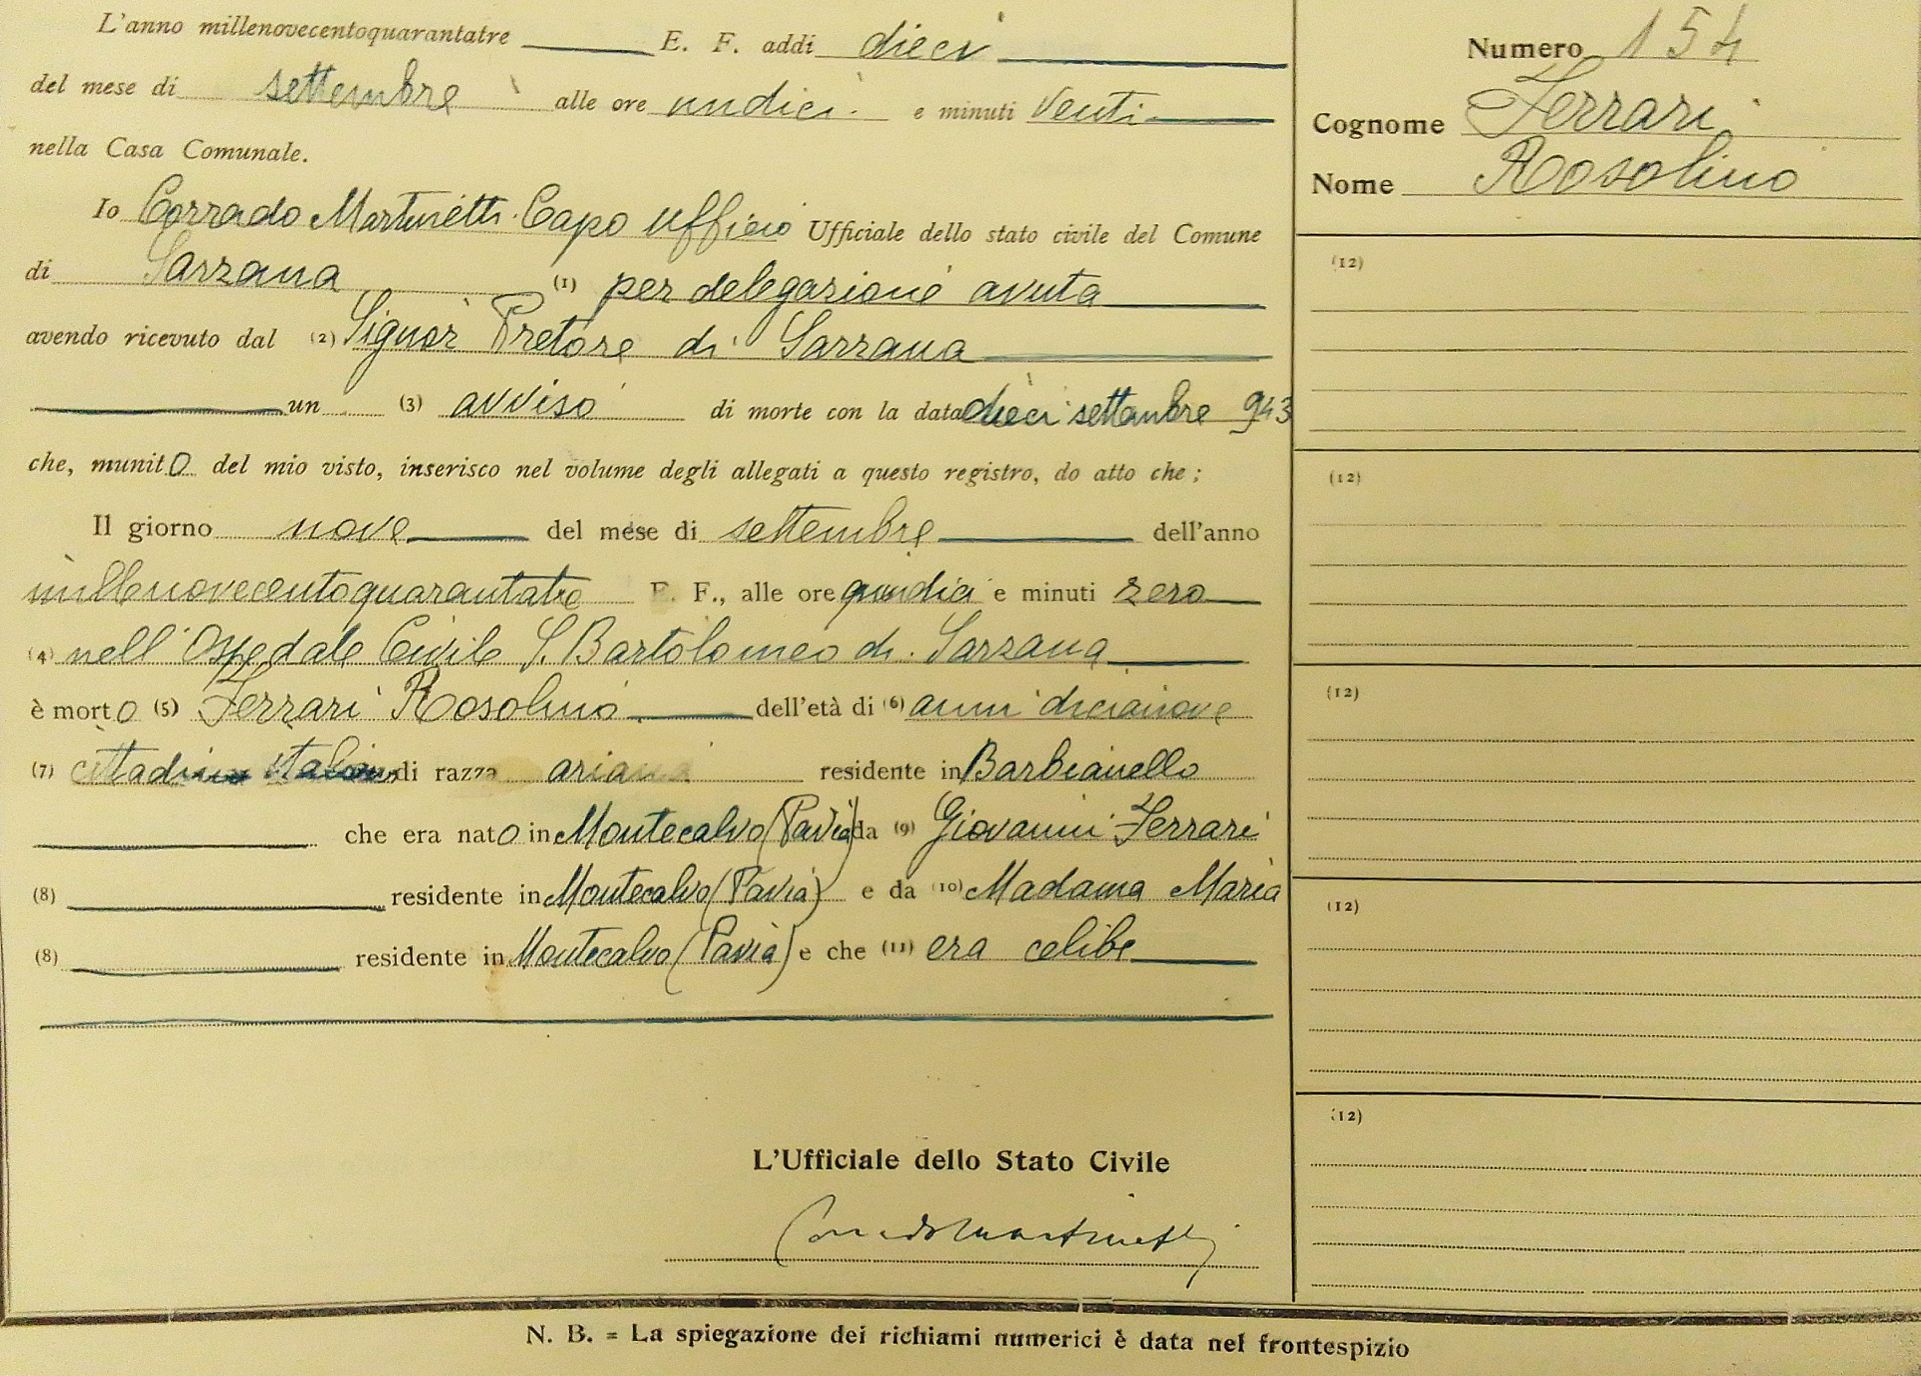 L'anno millenovecentoquarantatre E. F. addi dieci
del mese di settembre alle ore undici e minuti venti
nella Casa Comunale.
Io Corrado Martinetti Capo Ufficio Ufficiale dello stato civile del Comune
di Sarzana (1) per delegazione avuta
avendo ricevuto dal (2) Signor Pretore di Sarzana
un (3) avviso di morte con la data dieci settembre 943
che, munito del mio visto, inserisco nel volume degli allegati a questo registro, do atto che ;
Il giorno nove del mese di settembre dell'anno
millenovecentoquarantatre E. F., alle ore quindici e minuti zero
(4) nell'Ospedale Civile S. Bartolomeo di Sarzana
è morto (5) Ferrari Rosolino dell'età di (6) anni diciannove
(7) cittadino italiano di razza ariana residente in Barbianello
che era nato in Montecalvo (Pavia) da (9) Giovanni Ferrari
(8) residente in Montecalvo (Pavia) e da (10) Madama Maria
(8) residente in Montecalvo (Pavia) e che (11) era celibe
L'Ufficiale dello Stato Civile
Corrado Martinetti
N. B. = La spiegazione dei richiami numerici è data nel frontespizio
Numero 154
Cognome Ferrari
Nome Rosolino
(12)
(12)
(12)
(12)
(12)